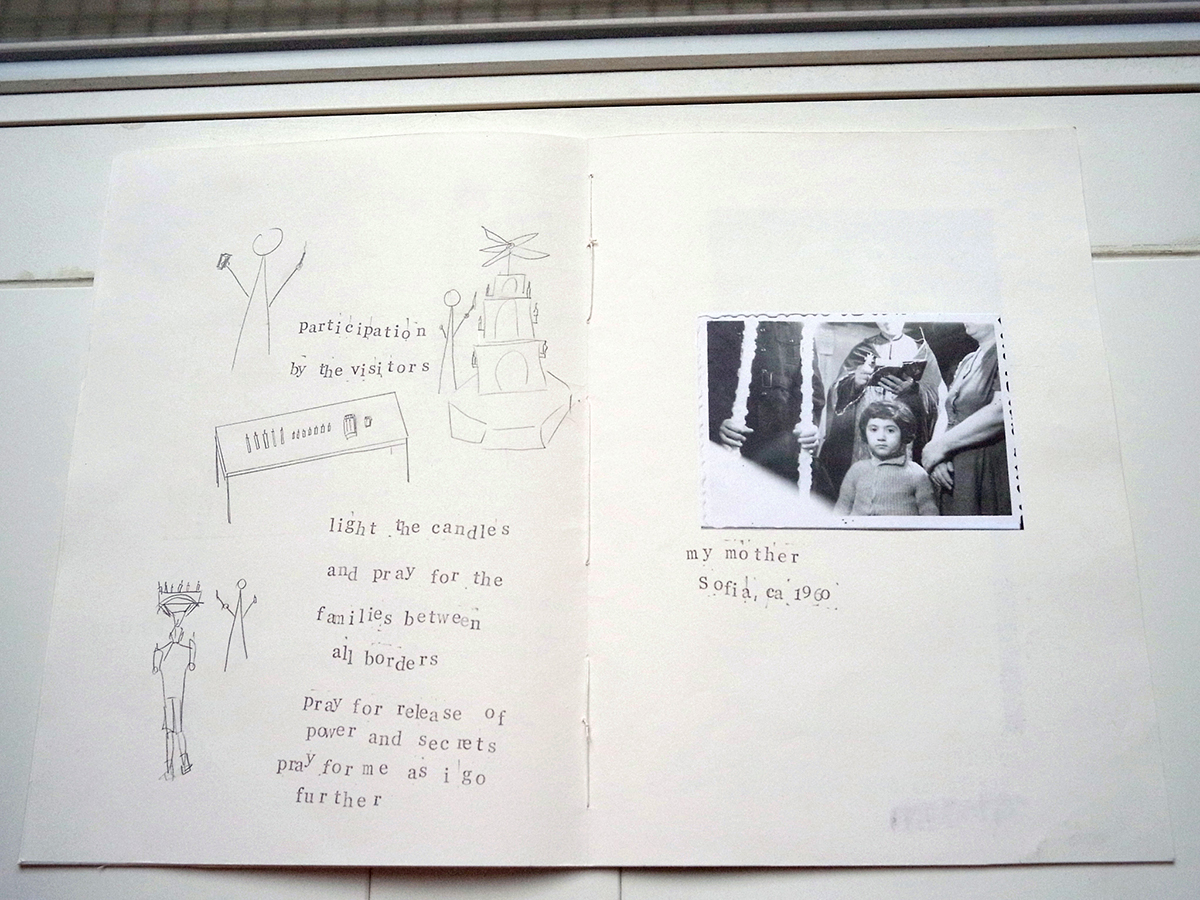 participation
by the visitors
light the candles
and pray for the
families between
all borders
pray for release of
power and secrets
pray for me as i go
further
my mother
Sofia, ca 1960